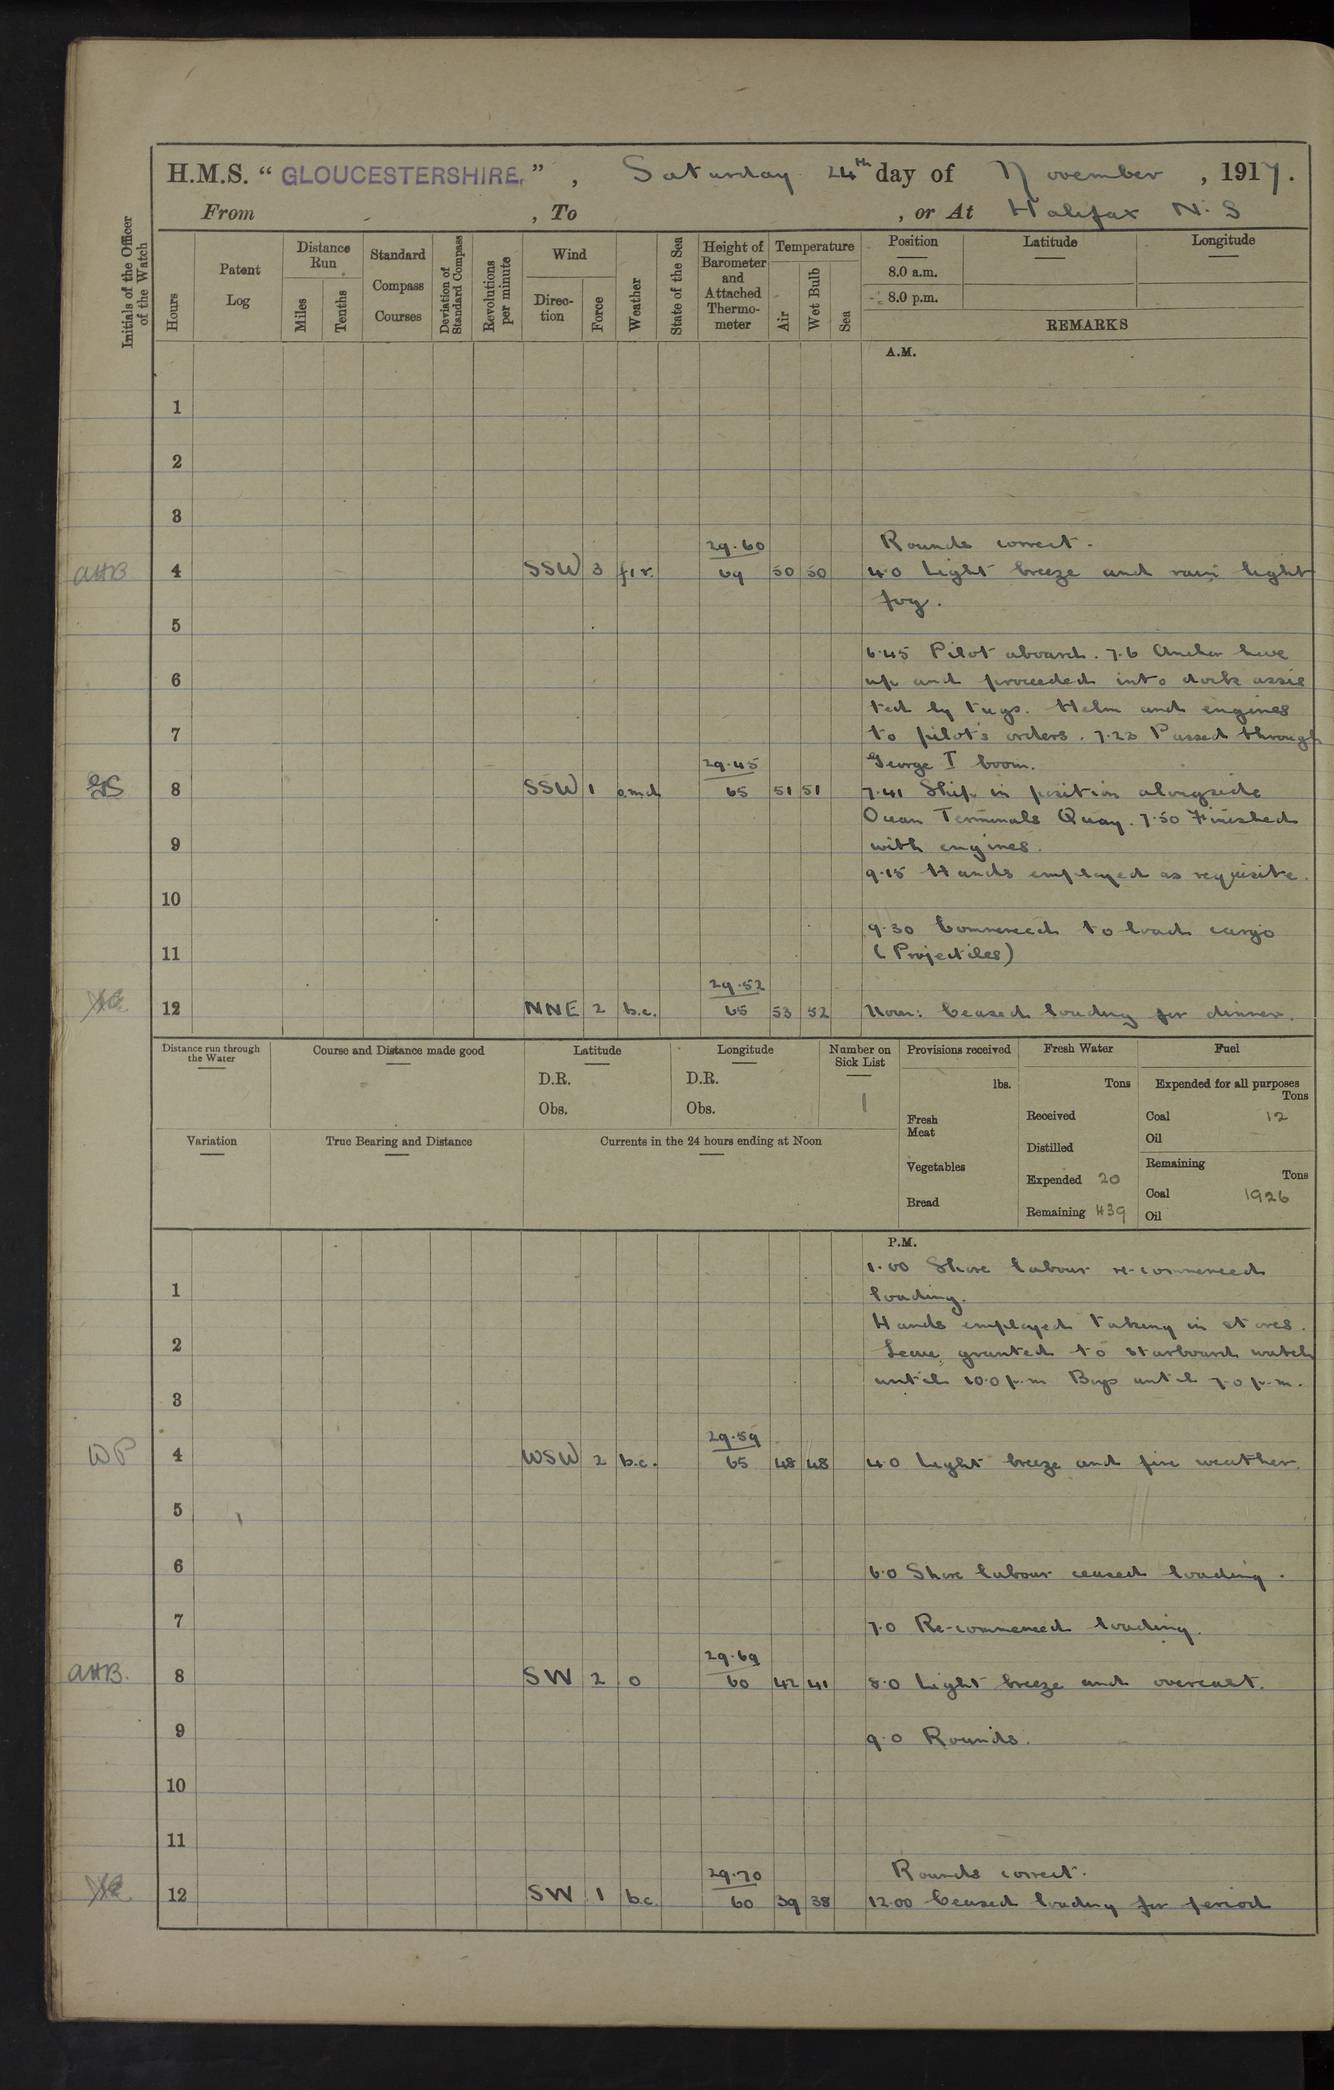 H.M.S. “ GLOUCESTERSHIRE. ” , Saturday 24th day of November , 1917.
From , To , or At Halifax N.S
Initials of the Officer of the Watch
Hours
Patent Log
Distance Run
Miles
Tenths
Standard Compass Courses
Deviation of Standard Compass
Revolutions per minute
Wind
Direction
Force
Weather
State of the Sea
Height of Barometer and Attached Thermometer
Temperature
Air
Wet Bulb
Sea
Position
8.0 a.m.
8.0 p.m.
Latitude
Longitude
REMARKS
A.M.
1
2
3
29.60 Rounds correct.
AHB 4 SSW 3 f.r. 69 50 50 4.0 Light breeze and rain light
fog.
5
6.45 Pilot aboard. 7.6 Anchor hove
6 up and proceeded into dock assis
ted by tugs. Helm and engines
7 to pilot's orders. 7.23 Passed through
29.45 George I boom.
GS 8 SSW 1 o.m.d. 65 51 51 7.41 Ship in position alongside
Ocean Terminals Quay. 7.50 Finished
9 with engines.
9.15 Hands employed as requisite.
10
9.30 Commenced to load cargo
11 (Projectiles)
29.52
12 NNE 2 b.c. 65 53 52 Noon: Ceased loading for dinner.
Distance run through the Water
Course and Distance made good
Latitude
D.R.
Obs.
Longitude
D.R.
Obs.
Number on Sick List
1
Provisions received
lbs.
Fresh Meat
Vegetables
Bread
Fresh Water
Tons
Received
Distilled
Expended 20
Remaining 439
Fuel
Expended for all purposes
Tons
Coal 12
Oil
Remaining
Tons
Coal 1926
Oil
Variation
True Bearing and Distance
Currents in the 24 hours ending at Noon
P.M.
1.00 Shore labour re-commenced
1 loading.
Hands employed taking in stores.
2 Leave granted to starboard watch
until 10.0 p.m Boys until 7.0 p.m.
3
29.59
WP 4 WSW 2 b.c. 65 48 48 4.0 Light breeze and fine weather.
5
6 6.0 Shore labour ceased loading.
7 7.0 Re-commenced loading.
29.69
AHB. 8 SW 2 o 60 42 41 8.0 Light breeze and overcast.
9 9.0 Rounds.
10
11
29.70 Rounds correct.
12 SW 1 b.c. 60 39 38 12.00 Ceased loading for period